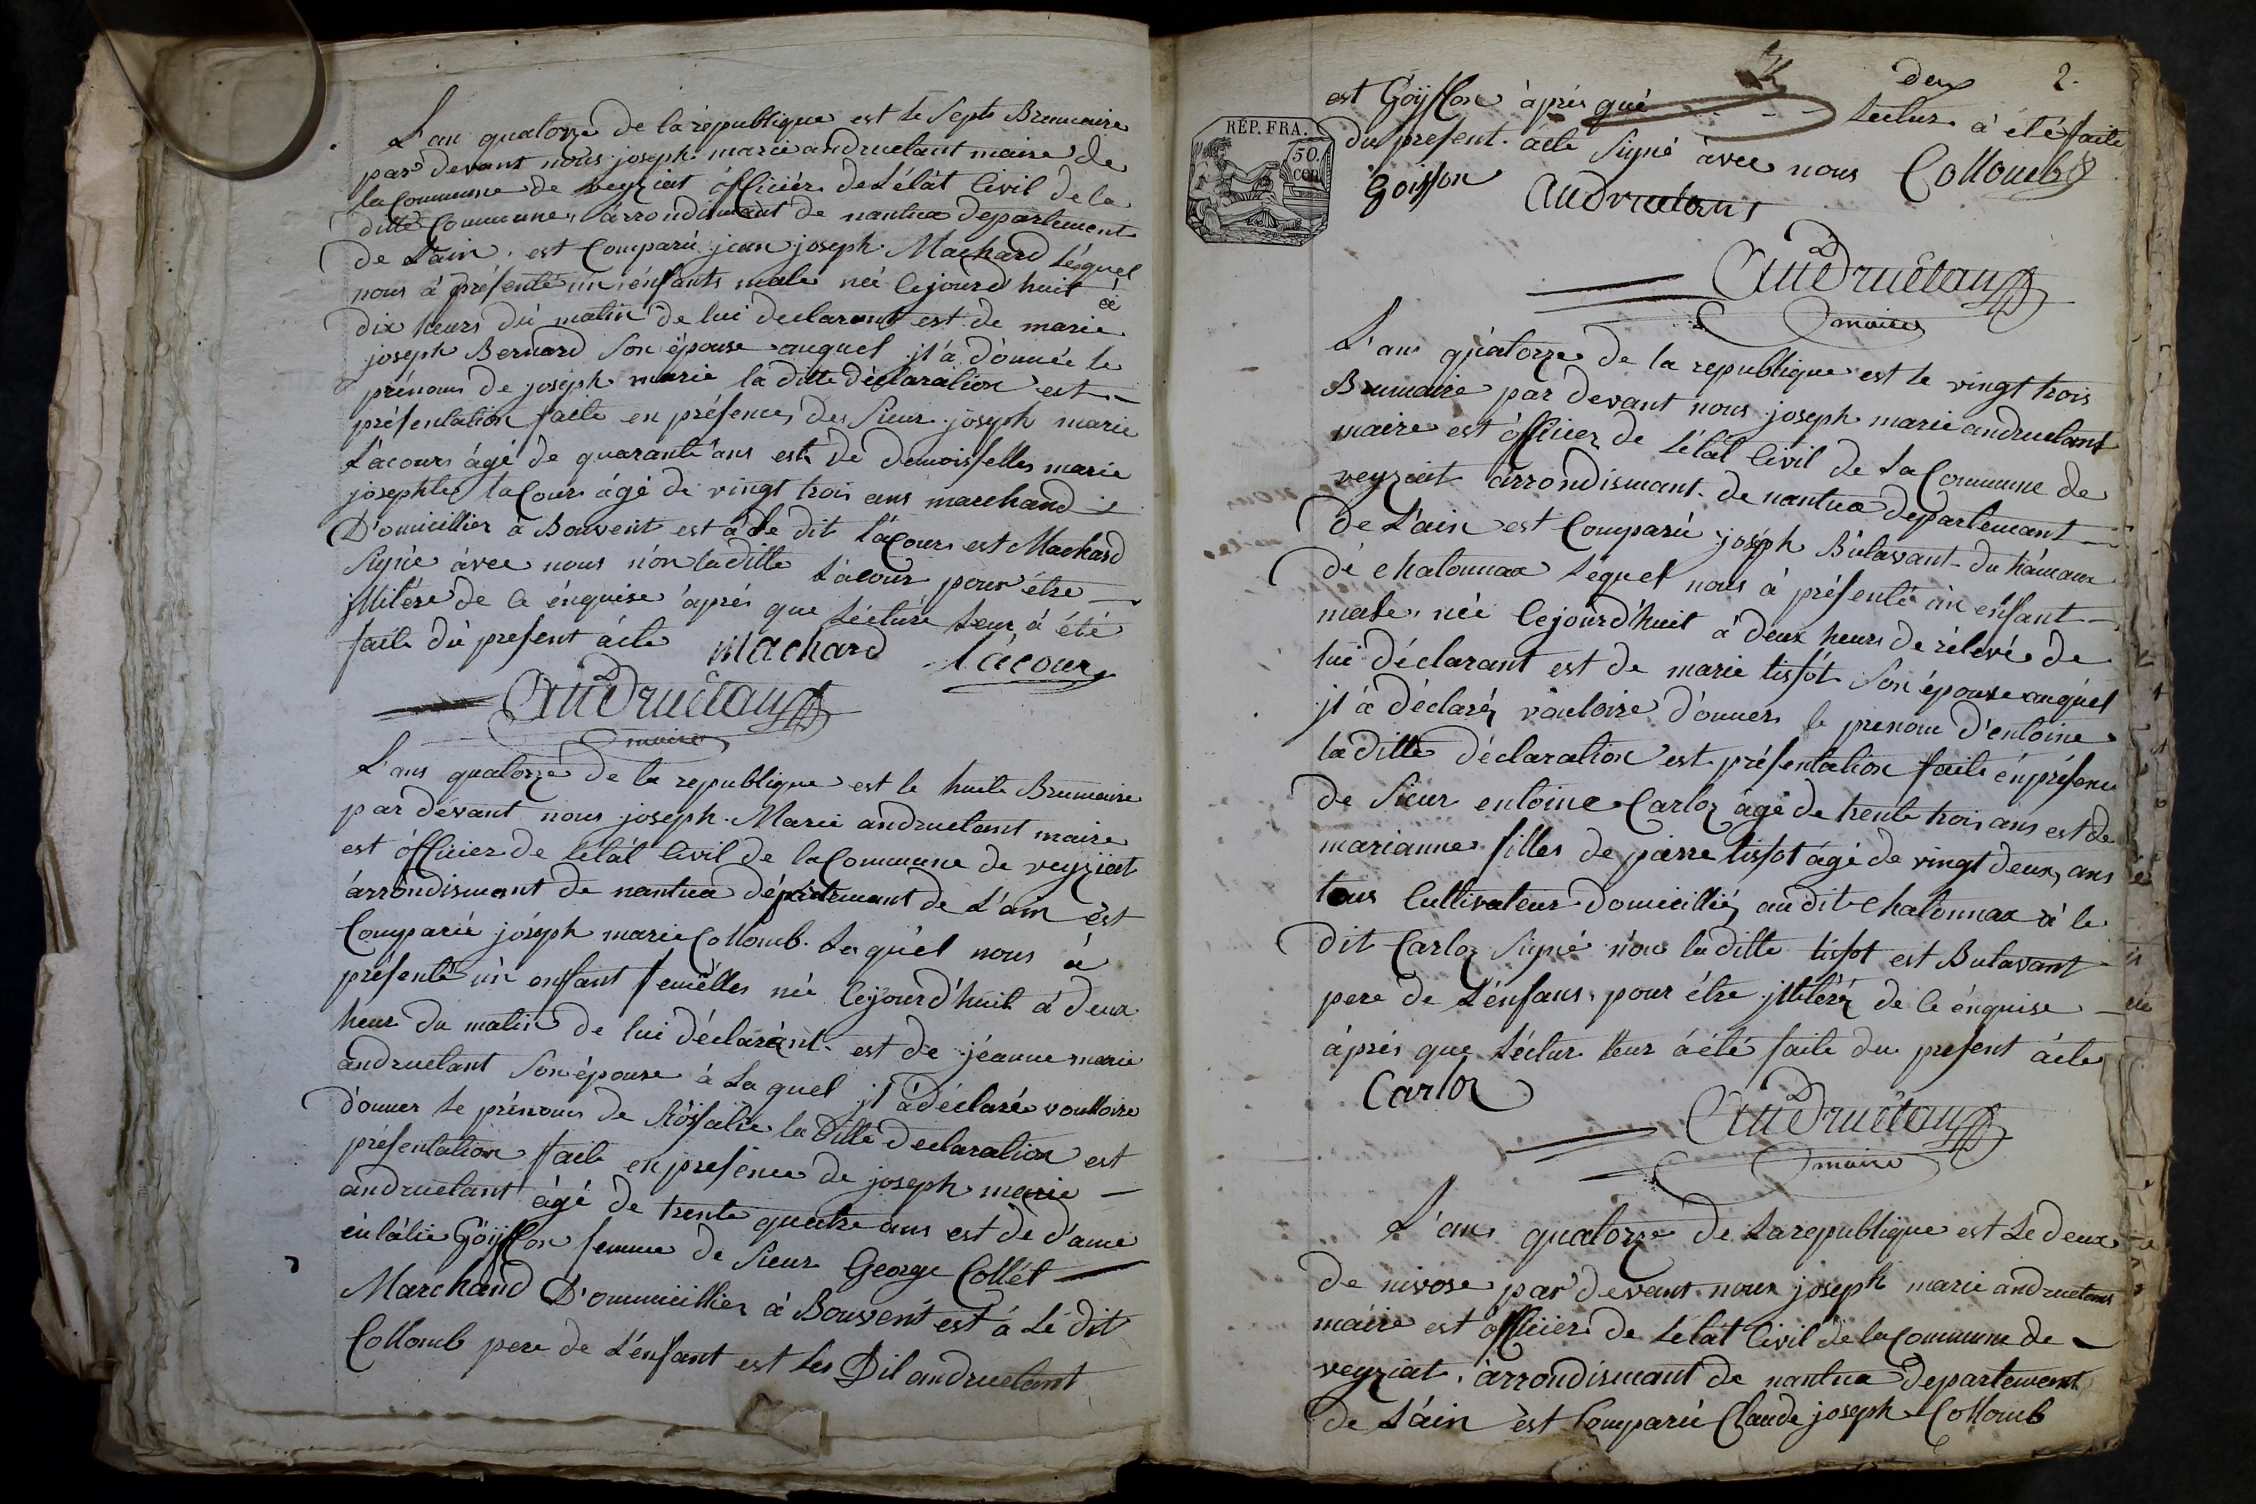 L'an quatorze de la république est le Septe Brumaire
par devant nous joseph marie andruetant maire de
la Commune de veyziat officiér de L'élât Civil de la
ditte Commune, arrondismant de nantua departement
de L'ain est Comparü jean joseph Machard Lequel
nous à présenté un énfants male néé Cejourd huit à
dix heurs du matin de lui déclarant est de marie
joseph Bernard Son épouse auquel jl'à donnée le
prénoms de joseph marie la ditte déclaration est
présentation faite en présence, des Sieur joseph marie
Lacours âgé de quarante ans est de demoisselles marie
josephte lacour âgé de vingt trois ans marchand
D'omicillier à Bouvent est à Le dit Lacours est Machard
Signée àvec nous n'on laditte Lacour pour être
jllitére de Ce énquise àprés que Lécture Leur à été
faite du present àcte Machard Lacour
Andruétan
maire
L'ans quatorze de la republique est le huite Brumaire
par dévant nous joseph Marie andruetant maire
est officier de L'élât Civil de la Commune de veyziat
àrrondismant de nantua département de L'ain est
Comparü joséph marie Collomb Le quél nous à
présenté un enffant femélles née Cejourd'huit à deux
heur du matin de lui déclarànt est de jéanne marie
andruetant Son épouse à La quel jl à déclaré voulloire
donner Le prénoms de Rosalie la ditte declaration est
présentation faite en presence de joseph marie
andruetant âgé de trente quatre ans est de dame
eulàlie Goÿffon femme de Sieur George Collét
Marchand D'ommicillier à Bouvent est à Lé dit
Collomb pere de L'énfant est Les Dit andruetant
deux 2.
est Goÿffon àprés que Lectur à été faite
REP. FRA.
50. cen.
du present àcte Signé àvec nous Collomb
Goiffon Andruetant
Andruétan
maire
L'ans quatorze de la republique est le vingt trois
Brumaire par devant nous joseph marie andruetant
maire est officier de L'élât Civil de La Commune de
veyziat àrrondismant de nantua departemant
de L'ain est Comparü joséph Bulavant du hámaux
dé chatonnax Lequel nous à présenté ün enfant
male, née Cejourd'huit à deux heurs de rélevé de
lui déclarant est de marie tissot Son épouse auquel
jl à déclaré, vouloire donner le prenom d'entoine
la ditte déclaration est présentation faite én présence
de Sieur entoine Carloz âgé de trente trois ans est de
marianne filles de pierre tissot âgé de vingt deux, ans
tous Cultivateur domicillié, au dit chatonnax à le
dit Carloz Signé n'on la ditte tissot est Bulavant
pere de L'énfans, pour être jllitéré de Ce énquise
àprés que Léctur Leur à été faite du present àcte
Carloz
Andruétan
maire
L'ans quatorze de La republique est Le deux
de nivose par devant nous joseph marie andruetant
máire est officier de L'élât Civil de la Commune de
veyziat, àrrondismant de nantua departement
de L'áin est Comparü Claude joseph Collomb